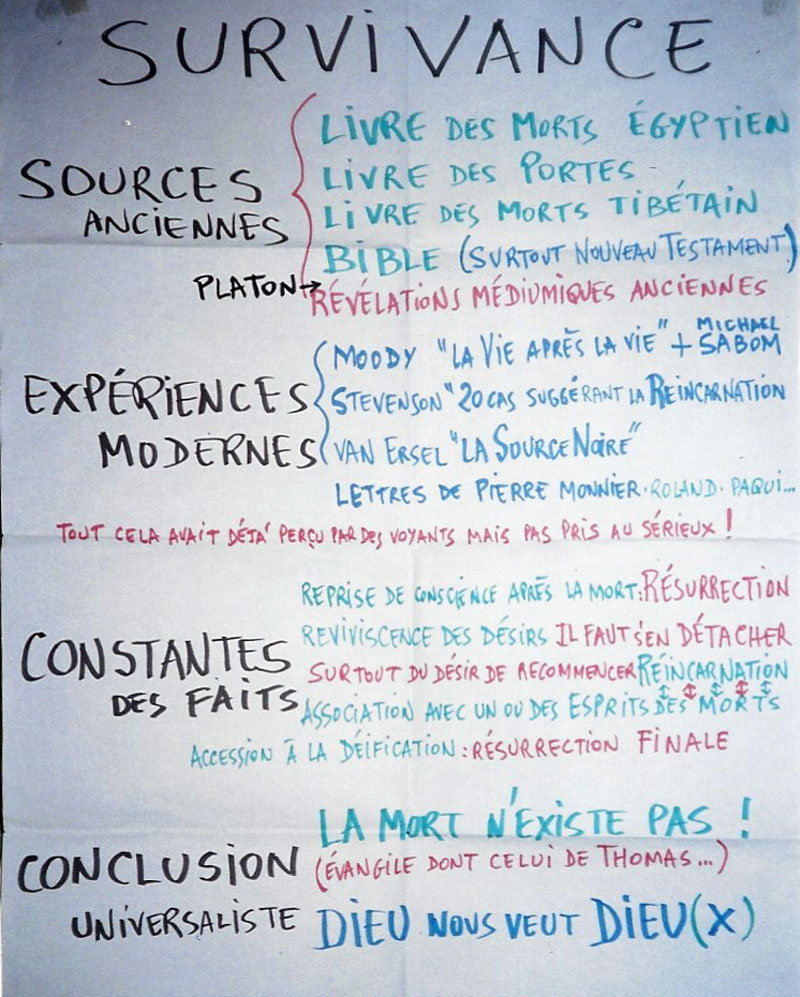 SURVIVANCE
SOURCES
ANCIENNES
LIVRE DES MORTS ÉGYPTIEN
LIVRE DES PORTES
LIVRE DES MORTS TIBÉTAIN
BIBLE (SURTOUT NOUVEAU TESTAMENT)
PLATON → RÉVÉLATIONS MÉDIUMIQUES ANCIENNES
EXPÉRIENCES
MODERNES
MOODY "LA VIE APRÈS LA VIE" + MICHAEL SABOM
STEVENSON "20 CAS SUGGÉRANT LA RÉINCARNATION
VAN ERSEL "LA SOURCE NOIRE"
LETTRES DE PIERRE MONNIER · ROLAND · PAQUI...
TOUT CELA AVAIT DÉTA' PERÇU PAR DES VOYANTS MAIS PAS PRIS AU SÉRIEUX !
CONSTANTES
DES FAITS
REPRISE DE CONSCIENCE APRÈS LA MORT : RÉSURRECTION
REVIVISCENCE DES DÉSIRS IL FAUT S'EN DÉTACHER
SURTOUT DU DÉSIR DE RECOMMENCER RÉINCARNATION
ASSOCIATION AVEC UN OU DES ESPRITS DES MORTS
ACCESSION À LA DÉIFICATION : RÉSURRECTION FINALE
CONCLUSION
UNIVERSALISTE
LA MORT N'EXISTE PAS !
(ÉVANGILE DONT CELUI DE THOMAS...)
DIEU NOUS VEUT DIEU(X)